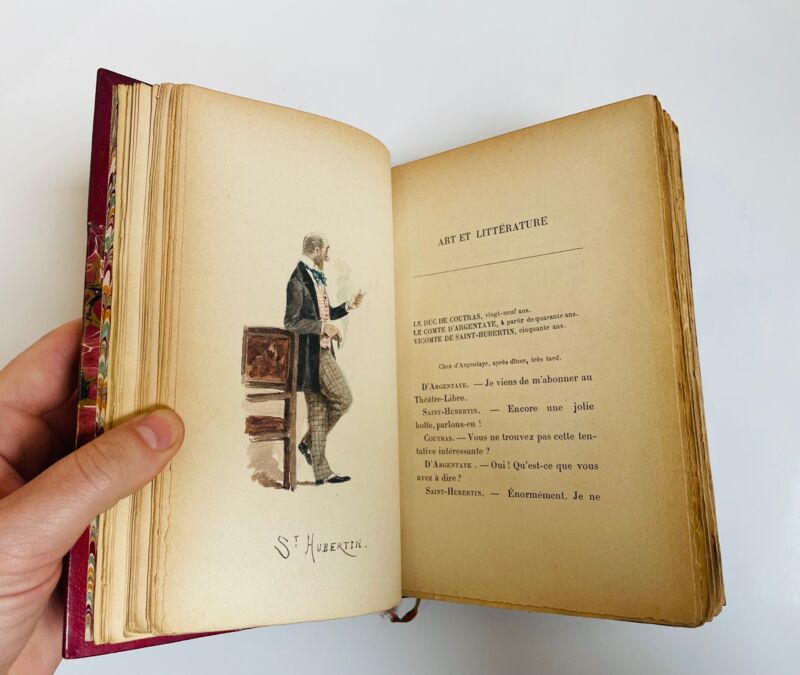 ST HUBERTIN.
ART ET LITTÉRATURE
LE DUC DE COUTRAS, vingt-neuf ans.
LE COMTE D'ARGENTAYE, à partir de quarante ans.
VICOMTE DE SAINT-HUBERTIN, cinquante ans.
Chez d'Argentaye, après dîner, très tard.
D'ARGENTAYE. — Je viens de m'abonner au
Théâtre-Libre.
SAINT-HUBERTIN. — Encore une jolie
boîte, parlons-en !
COUTRAS. — Vous ne trouvez pas cette ten-
tative intéressante ?
D'ARGENTAYE. — Oui ! Qu'est-ce que vous
avez à dire ?
SAINT-HUBERTIN. — Énormément. Je ne